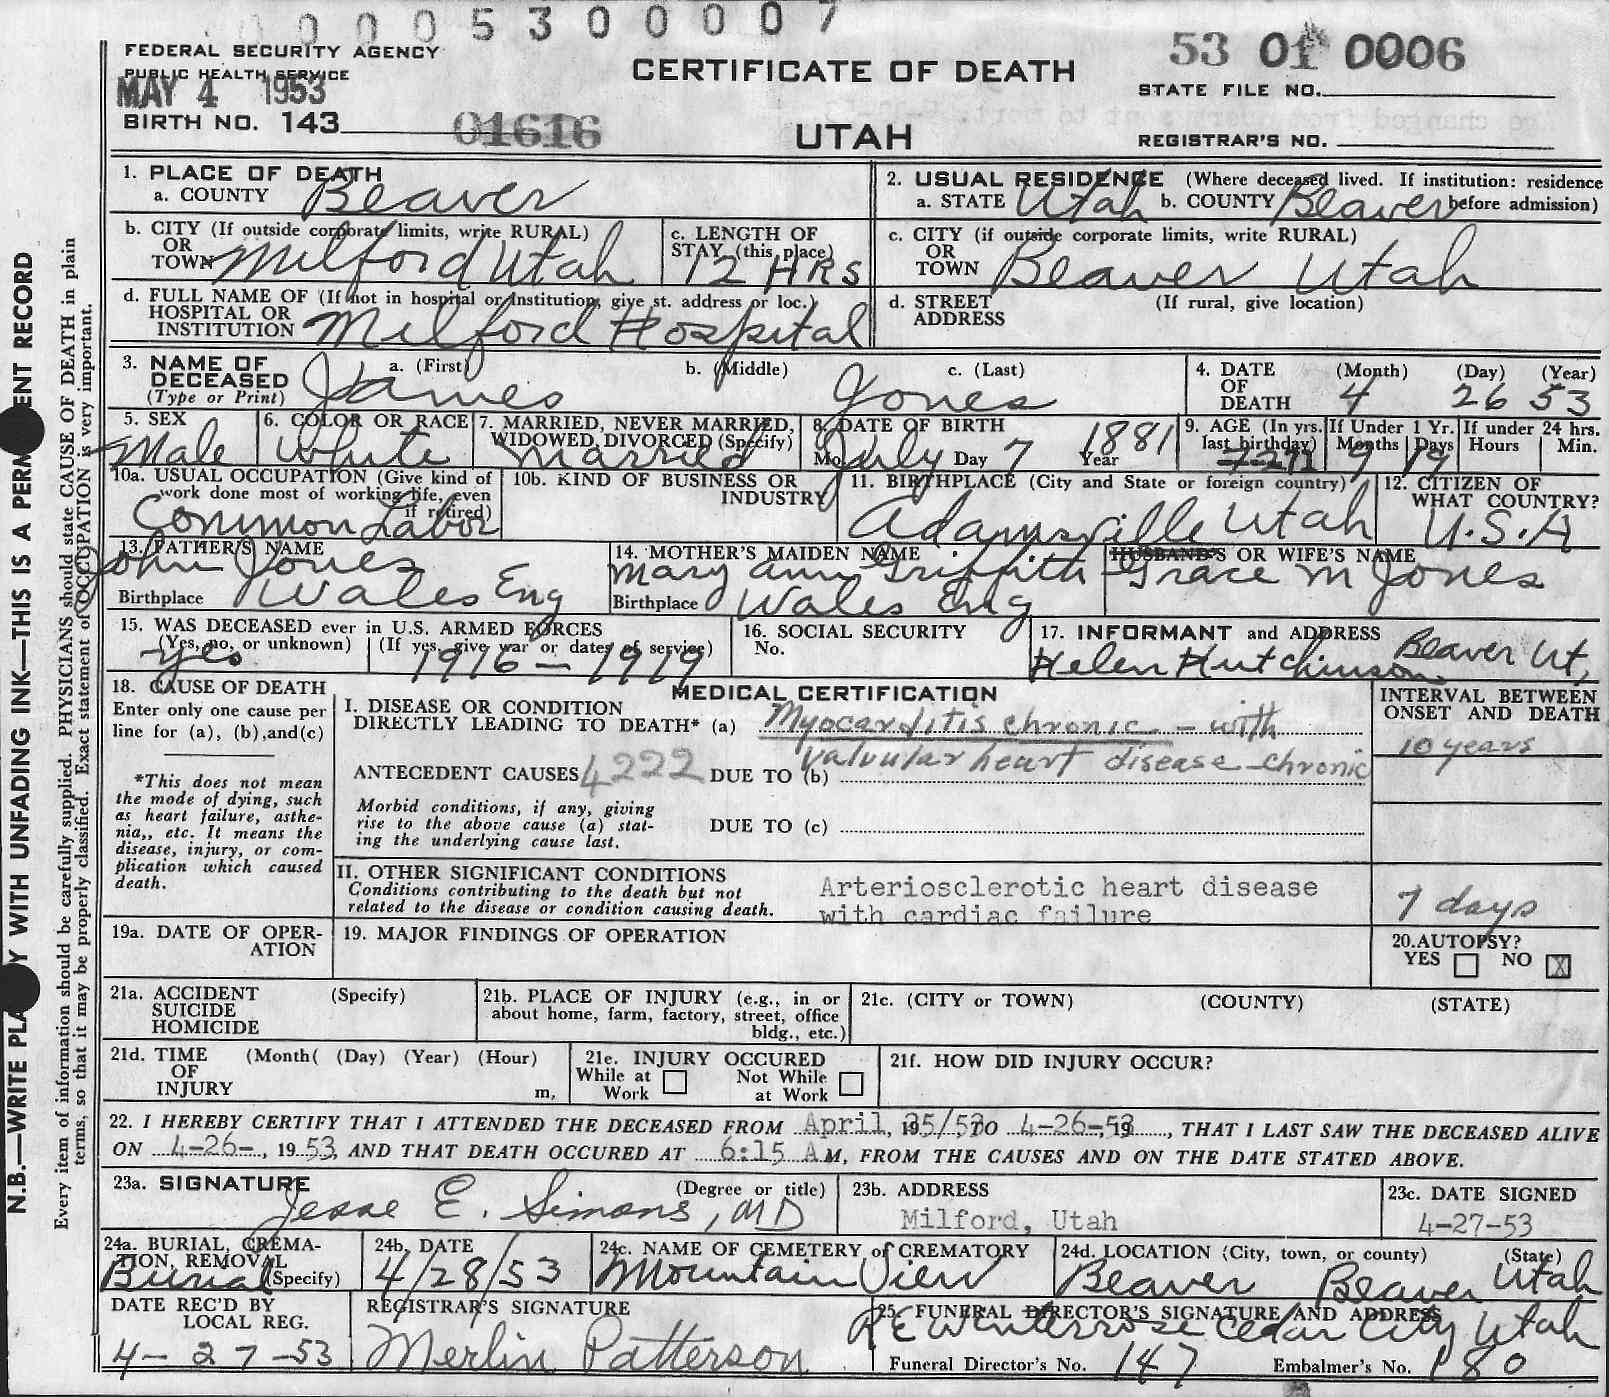 0 0 0 5 3 0 0 0 0 7
FEDERAL SECURITY AGENCY
PUBLIC HEALTH SERVICE
MAY 4 1953
BIRTH NO. 143
01616
CERTIFICATE OF DEATH
UTAH
53 01 0006
STATE FILE NO.
REGISTRAR'S NO.
N.B.—WRITE PLA Y WITH UNFADING INK—THIS IS A PERMA ENT RECORD
Every item of information should be carefully supplied. PHYSICIANS should state CAUSE OF DEATH in plain
terms, so that it may be properly classified. Exact statement of OCCUPATION is very important.
1. PLACE OF DEATH
a. COUNTY Beaver
2. USUAL RESIDENCE (Where deceased lived. If institution: residence
a. STATE Utah b. COUNTY Beaver before admission)
b. CITY (If outside corporate limits, write RURAL)
OR
TOWN Milford Utah
c. LENGTH OF
STAY (this place)
12 HRS
c. CITY (if outside corporate limits, write RURAL)
OR
TOWN Beaver Utah
d. FULL NAME OF (If not in hospital or institution, give st. address or loc.)
HOSPITAL OR
INSTITUTION Milford Hospital
d. STREET (If rural, give location)
ADDRESS
3. NAME OF a. (First) b. (Middle) c. (Last)
DECEASED James Jones
(Type or Print)
4. DATE (Month) (Day) (Year)
OF
DEATH 4 26 53
5. SEX
Male
6. COLOR OR RACE
White
7. MARRIED, NEVER MARRIED,
WIDOWED, DIVORCED (Specify)
Married
8. DATE OF BIRTH
Mo July Day 7 Year 1881
9. AGE (In yrs.
last birthday)
71
If Under 1 Yr.
Months Days
9 19
If under 24 hrs.
Hours Min.
10a. USUAL OCCUPATION (Give kind of
work done most of working life, even
if retired)
Common Labor
10b. KIND OF BUSINESS OR
INDUSTRY
11. BIRTHPLACE (City and State or foreign country)
Adamsville Utah
12. CITIZEN OF
WHAT COUNTRY?
U.S.A
13. FATHER'S NAME
John Jones
Birthplace Wales Eng
14. MOTHER'S MAIDEN NAME
Mary Ann Griffith
Birthplace Wales Eng
HUSBAND'S OR WIFE'S NAME
Grace M Jones
15. WAS DECEASED ever in U.S. ARMED FORCES
(Yes, no, or unknown) (If yes, give war or dates of service)
yes 1916 – 1919
16. SOCIAL SECURITY
No.
17. INFORMANT and ADDRESS
Helen Hutchinson Beaver Ut,
18. CAUSE OF DEATH
Enter only one cause per
line for (a), (b), and (c)
*This does not mean
the mode of dying, such
as heart failure, asthe-
nia,, etc. It means the
disease, injury, or com-
plication which caused
death.
MEDICAL CERTIFICATION
I. DISEASE OR CONDITION
DIRECTLY LEADING TO DEATH* (a) Myocarditis chronic – with
valvular heart disease – chronic
ANTECEDENT CAUSES 4222 DUE TO (b)
Morbid conditions, if any, giving
rise to the above cause (a) stat-
ing the underlying cause last.
DUE TO (c)
INTERVAL BETWEEN
ONSET AND DEATH
10 years
II. OTHER SIGNIFICANT CONDITIONS
Conditions contributing to the death but not
related to the disease or condition causing death.
Arteriosclerotic heart disease
with cardiac failure
7 days
19a. DATE OF OPER-
ATION
19. MAJOR FINDINGS OF OPERATION
20. AUTOPSY?
YES NO X
21a. ACCIDENT (Specify)
SUICIDE
HOMICIDE
21b. PLACE OF INJURY (e.g., in or
about home, farm, factory, street, office
bldg., etc.)
21c. (CITY or TOWN) (COUNTY) (STATE)
21d. TIME (Month( (Day) (Year) (Hour)
OF
INJURY m,
21e. INJURY OCCURED
While at Not While
Work at Work
21f. HOW DID INJURY OCCUR?
22. I HEREBY CERTIFY THAT I ATTENDED THE DECEASED FROM April, 1925/53 TO 4-26-53, 19, THAT I LAST SAW THE DECEASED ALIVE
ON 4-26-, 19 53, AND THAT DEATH OCCURED AT 6:15 AM, FROM THE CAUSES AND ON THE DATE STATED ABOVE.
23a. SIGNATURE (Degree or title)
Jesse E. Simons, MD
23b. ADDRESS
Milford, Utah
23c. DATE SIGNED
4-27-53
24a. BURIAL, CREMA-
TION, REMOVAL
Burial (Specify)
24b. DATE
4/28/53
24c. NAME OF CEMETERY of CREMATORY
Mountain View
24d. LOCATION (City, town, or county) (State)
Beaver Beaver Utah
DATE REC'D BY
LOCAL REG.
4-27-53
REGISTRAR'S SIGNATURE
Merlin Patterson
25. FUNERAL DIRECTOR'S SIGNATURE AND ADDRESS
R E Winterrose Cedar City Utah
Funeral Director's No. 147 Embalmer's No. 180